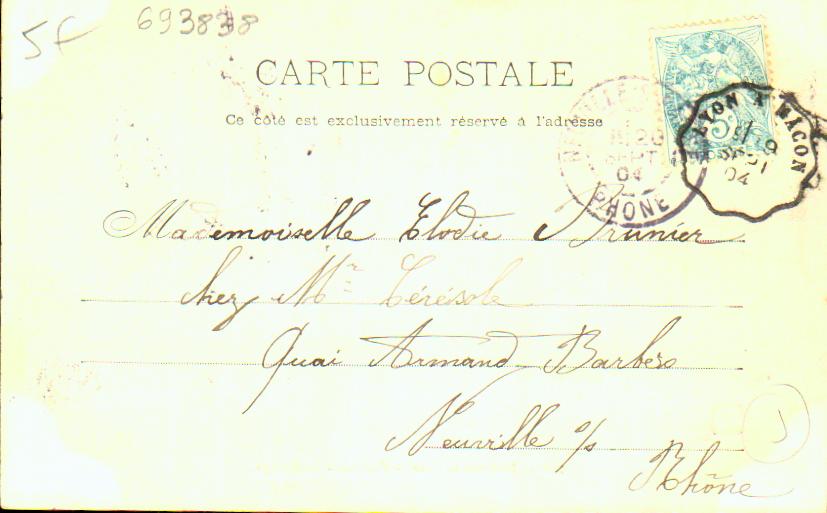 5f
693838
CARTE POSTALE
Ce côté est exclusivement réservé à l'adresse
5c
LYON A MACON
04
SEPT
04
RHONE
Mademoiselle Elodie Prunier
chez Mr Cérésole
Quai Armand Barbès
Neuville s/s
Rhône